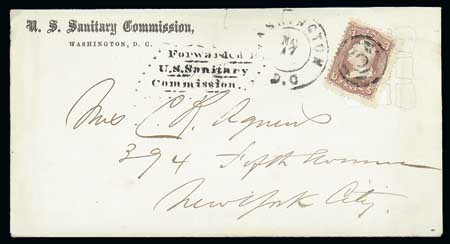 U. S. Sanitary Commission,
WASHINGTON, D. C.
Forwarded
U.S. Sanitary
Commission.
WASHINGTON
17
D.C
Mrs C. R. Agnew
394 Fifth Avenue
New York City.